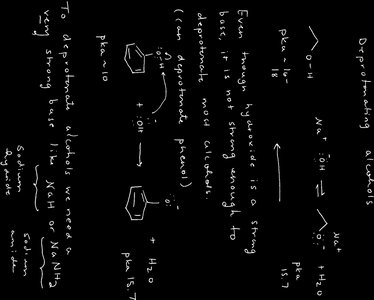 Deprotonating alcohols
O-H Na⁺ :ÖH ⇌ Na⁺ O:⁻ + H₂O
pka ~ 16- 18
pka 15.7
Even though hydroxide is a strong
base, it is not strong enough to
deprotonate most alcohols.
(can deprotonate phenol)
Ö-H + :ÖH → Ö:⁻ + H₂O
pka ~ 10
pka 15.7
To deprotonate alcohols we need a
very strong base like NaH or NaNH₂
Sodium hydride
sodium amide